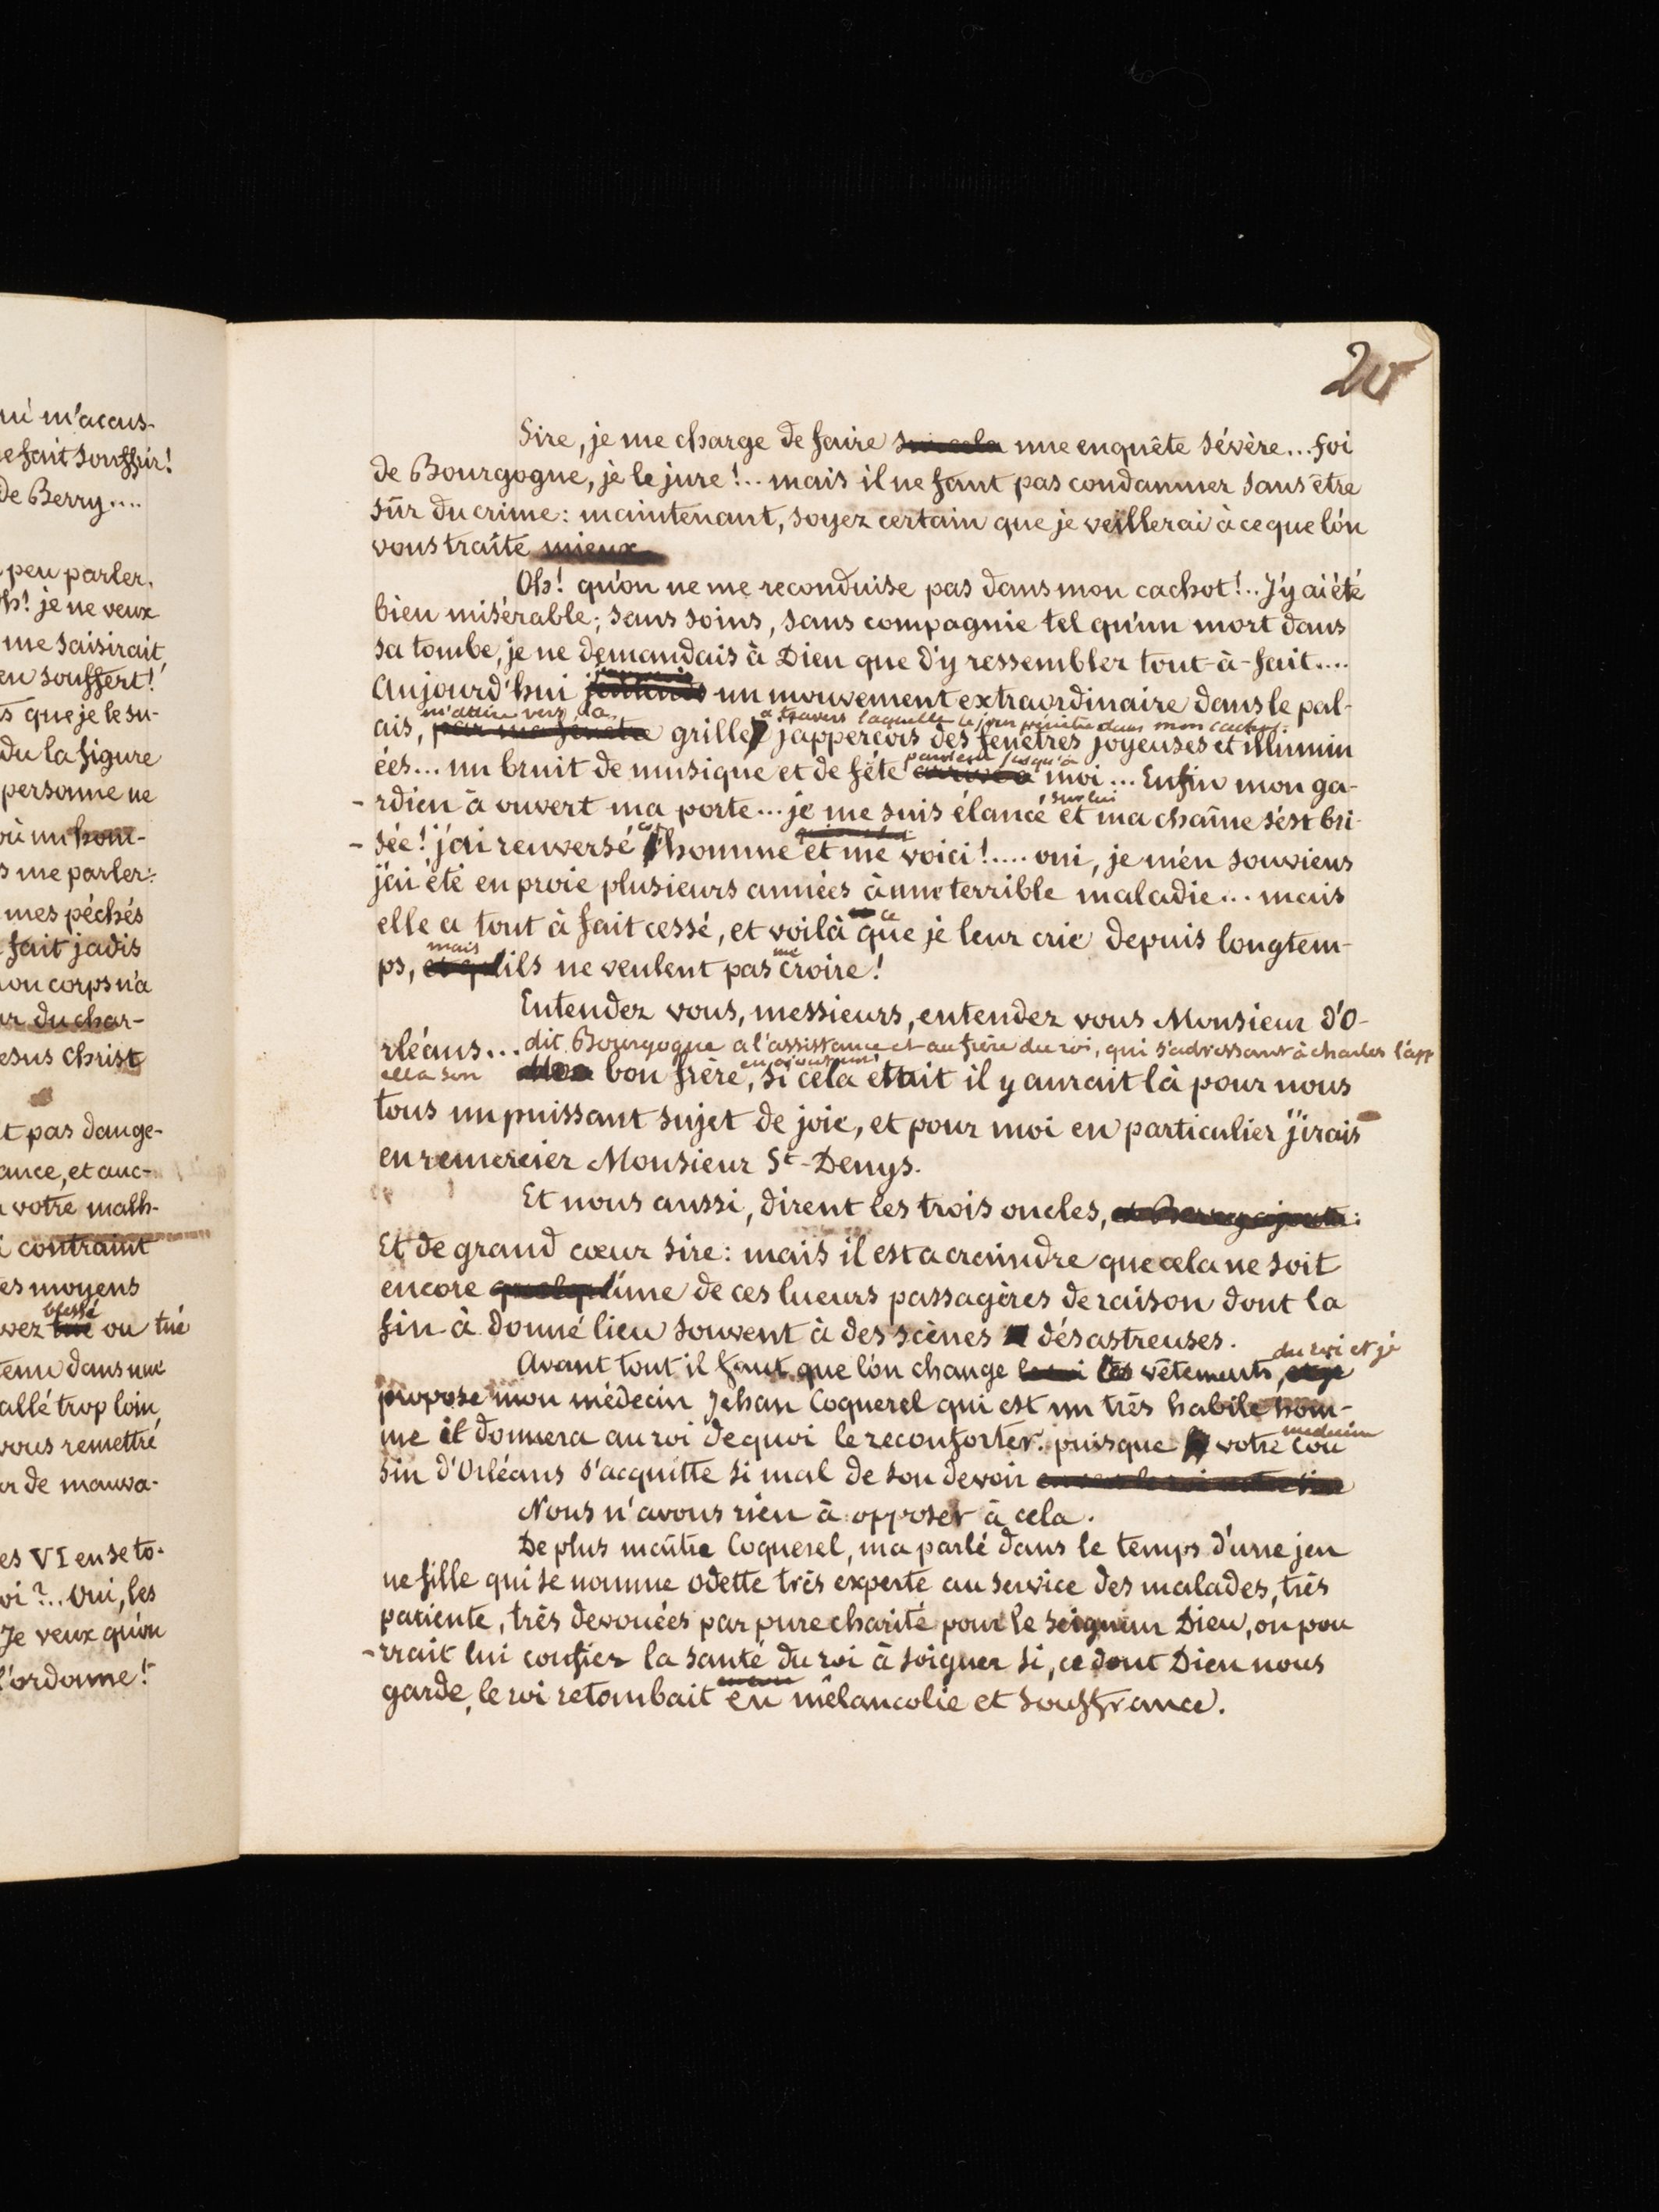 ui m'accus-
e fait souffrir!
de Berry....
peu parler.
h! je ne veux
me saisirait
en souffert!
s que je le su-
du la figure
personne ne
où un hom-
s me parler.
mes péchés
fait jadis
on corps n'a
r du char-
esus Christ
t pas dange-
ance, et auc-
votre malh-
i contraint
es moyens
blessé
vez tué ou tué
tenu dans une
allé trop loin
vous remettre
r de mauva-
es VI en se to-
oi?.. Oui, les
Je veux qu'on
l'ordonne!
20
Sire, je me charge de faire sur cela une enquête sévère... foi
de Bourgogne, je le jure!.. mais il ne faut pas condamner sans être
sûr du crime: maintenant, soyez certain que je veillerai à ce que l'on
vous traîte mieux
Oh! qu'on ne me reconduise pas dans mon cachot!.. J'y ai été
bien misérable; sans soins, sans compagnie tel qu'un mort dans
sa tombe, je ne demandais à Dieu que d'y ressembler tout-à-fait....
Aujourd'hui j'entends un mouvement extraordinaire dans le pal-
m'attire vers la à travers laquelle le jour pénètre dans mon cachot.
ais, par ma fenêtre grille j'apperçois des fenêtres joyeuses et illumin
parvient jusqu'à
ées... un bruit de musique et de fête arrive à moi... Enfin mon ga-
sur lui
- rdien à ouvert ma porte... je me suis élancé et ma chaîne s'est bri-
cet
- sée! j'ai renversé l'homme et me voici!.... oui, je m'en souviens
j'ai été en proie plusieurs années à une terrible maladie... mais
ce
elle a tout à fait cessé, et voilà que je leur crie depuis longtem-
mais me
ps, et qu'ils ne veulent pas croire!
Entendez vous, messieurs, entendez vous Monsieur d'O-
rléans... dit Bourgogne a l'assistance et au frère du roi, qui s'adressant à charles l'app
ella son en ajoutant
bon frère, si cela était il y aurait là pour nous
tous un puissant sujet de joie, et pour moi en particulier j'irais
en remercier Monsieur St-Denys.
Et nous aussi, dirent les trois oncles, et Berry ajouta:
Et de grand cœur sire: mais il est a craindre que cela ne soit
encore l'une de ces lueurs passagères de raison dont la
fin à donné lieu souvent à des scènes désastreuses.
du roi et je
Avant tout il faut que l'on change le roi les vêtements, et je
propose mon médecin Jehan Coquerel qui est un très habile hom-
medecin
me il donnera au roi de quoi le reconforter. puisque votre cou
sin d'Orléans s'acquitte si mal de son devoir
Nous n'avons rien à opposer à cela.
De plus maître Coquerel, m'a parlé dans le temps d'une jeu
ne fille qui se nomme Odette très experte au service des malades, très
patiente, très devouées par pure charité pour le seigneur Dieu, on pou
- rrait lui confier la santé du roi à soigner si, ce dont Dieu nous
garde, le roi retombait en mélancolie et souffrance.